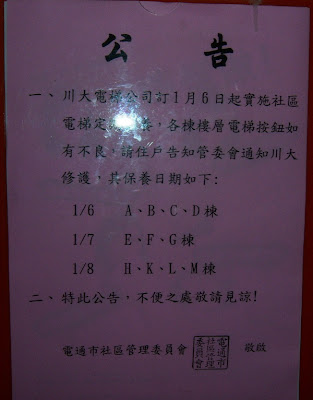 公 告
一、川大電梯公司訂1月6日起實施社區
電梯定 養，各棟樓層電梯按鈕如
有不良，請住戶告知管委會通知川大
修護，其保養日期如下:
1/6 A、B、C、D棟
1/7 E、F、G棟
1/8 H、K、L、M棟
二、特此公告，不便之處敬請見諒!
電通市社區管理委員會 電通市社區管理委員會 敬啟